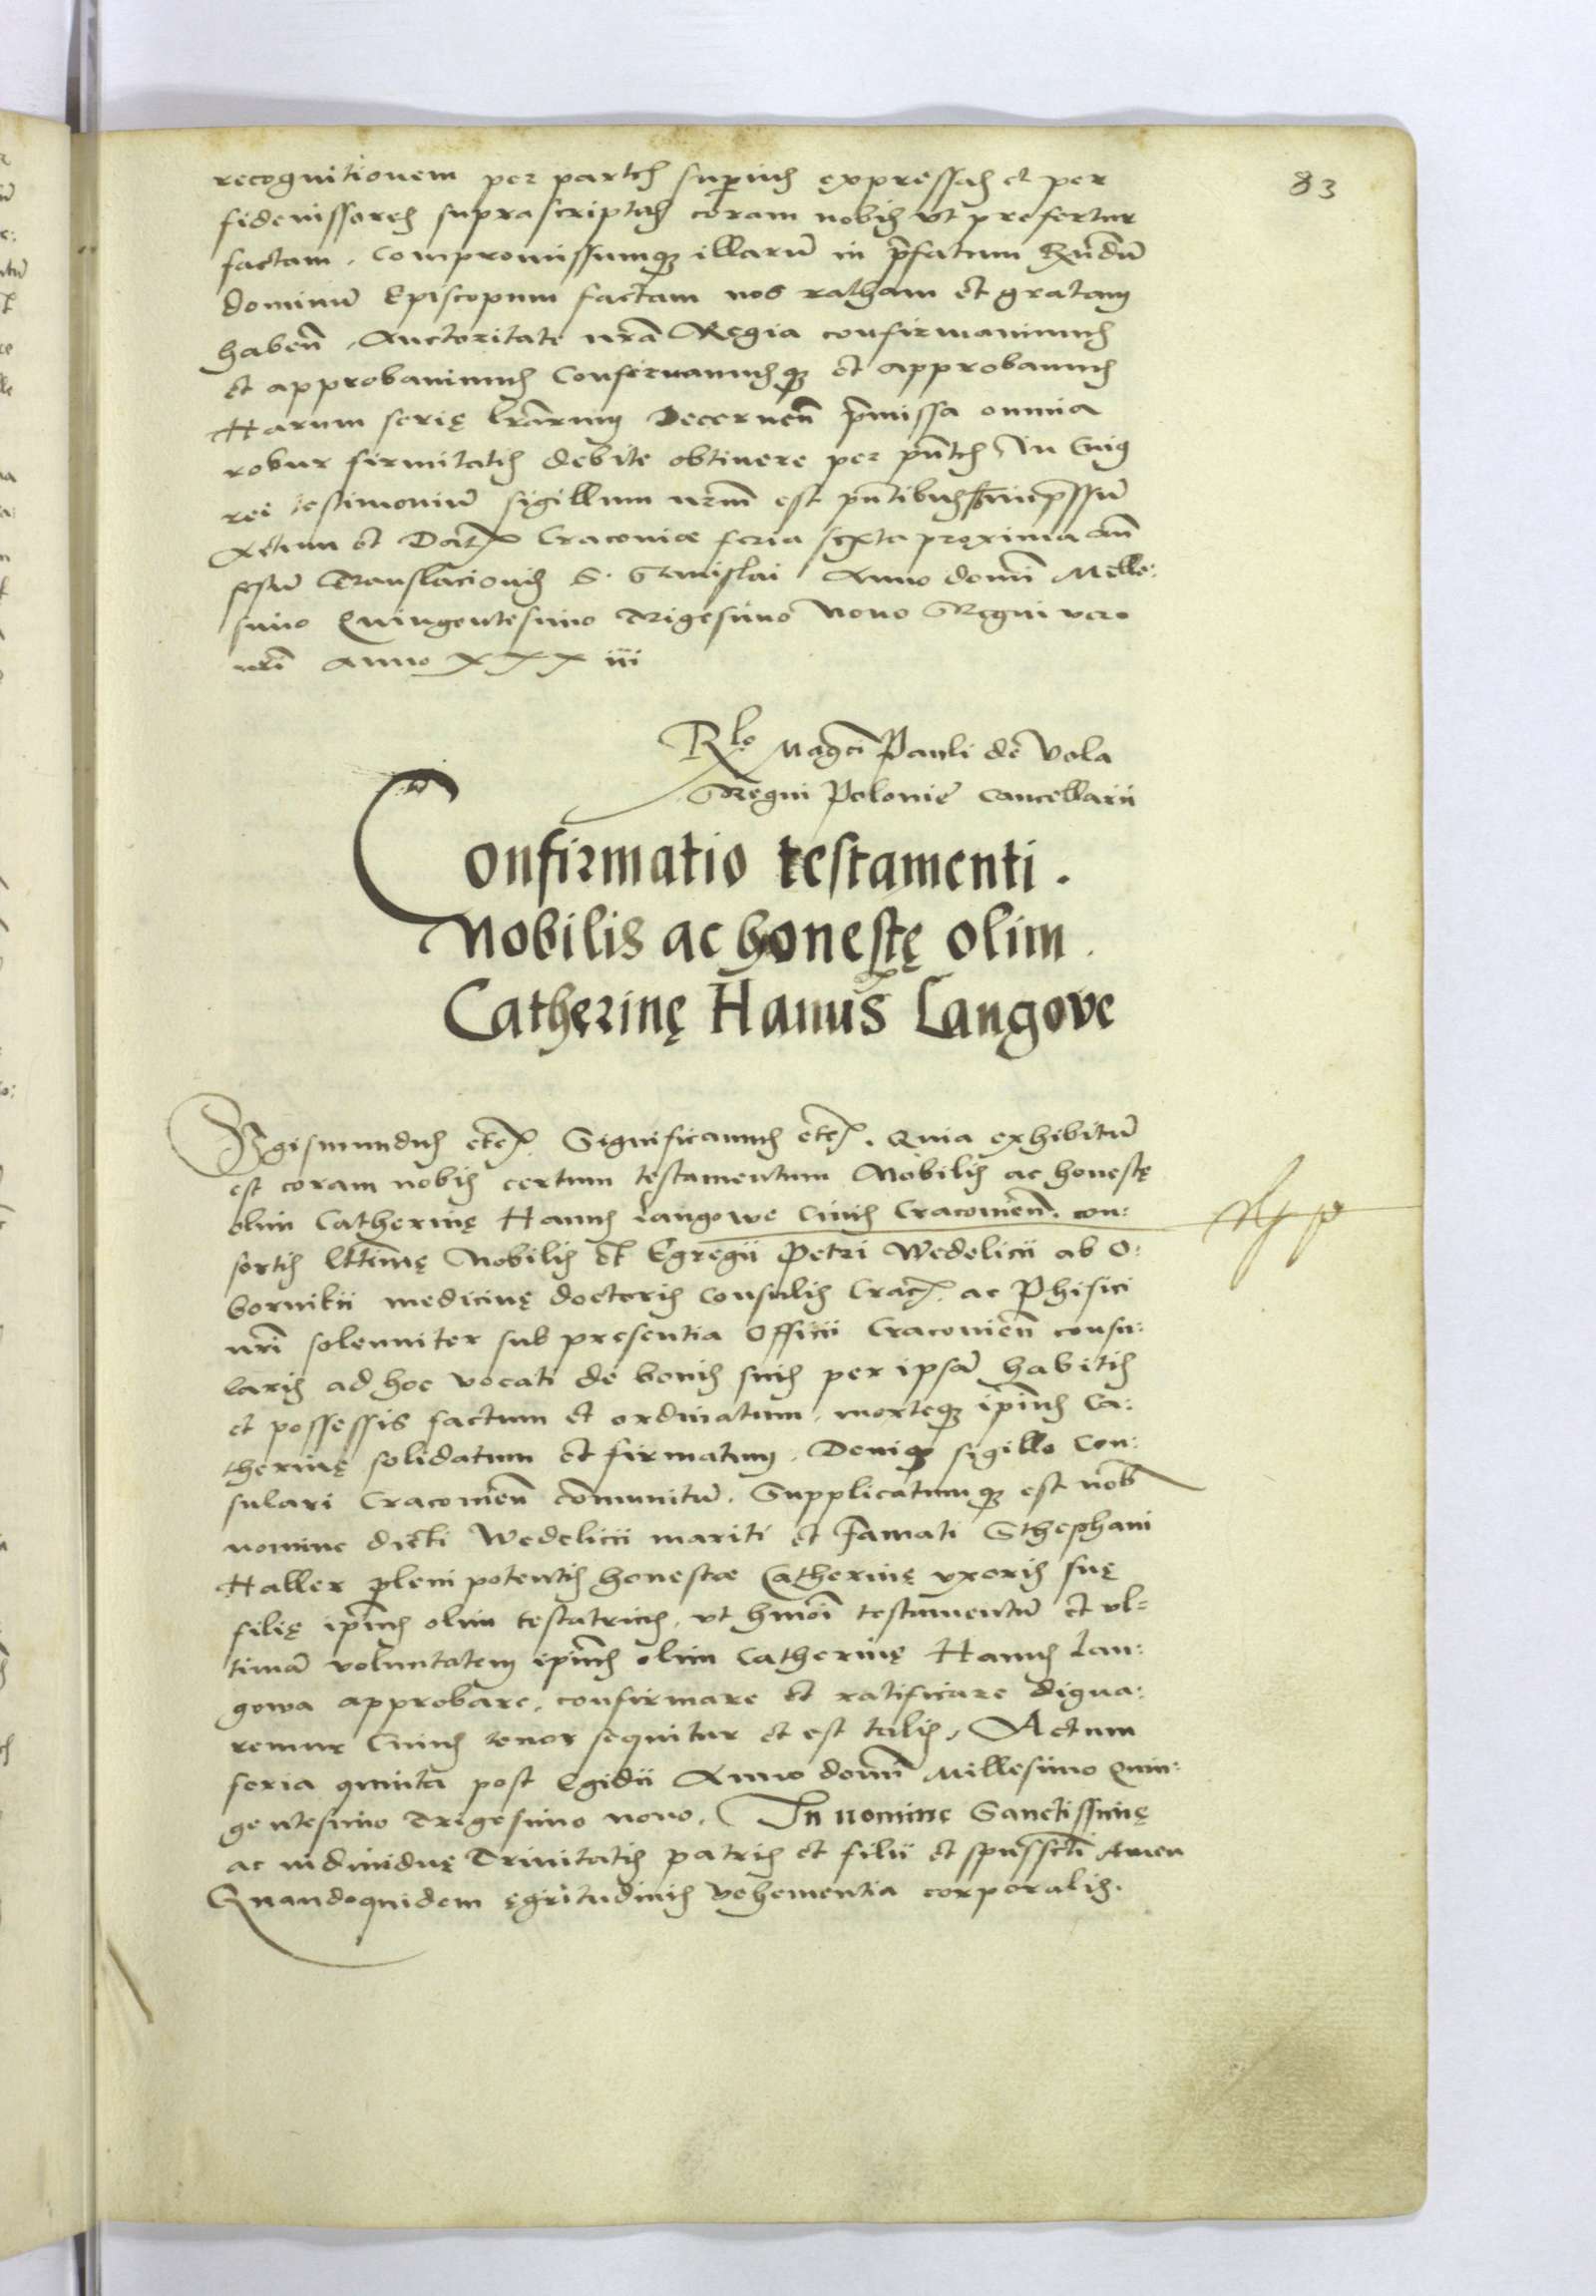 83
recognitionem per partes superius expressas et per
fideiussores suprascriptas coram nobis ut prefertur
factam, compromissumq3 illarū in p̄fatum Rūdū
dominū Episcopum factam nos ratham et gratam
habeñ, Auctoritate nr̄a Regia confirmavimus
et approbavimus Confirmamusq3 et approbamus
Harum serię lr̄arum Decerneñ p̄missa omnia
robur firmitatis debite obtinere per p̄ntes In Cuius
rei testimoniū sigillum nrm̄ est p̄ntibus
Actum et Dat Cracoviæ feria sexta proxima añ
festū Translacionis S. Stanislai Anno domī Mille:
simo Quingentesimo Trigesimo Nono Regni vero
nr̄i Anno XXX iii
Rlo Magci Pauli de Vola
Regni Polonie Cancellarii
Confirmatio testamenti.
Nobilis ac honestę olim.
Catherinę Hanus Langove
Sigismundus etc. Significamus etc. Quia exhibitū
est coram nobis certum testamentum Nobilis ac honestę
olim Catherinę Hanus Langowe Civis Cracovieñ. con:
sortis Nobilis et Egregii Petri Wedelicii ab O:
bornikii medicinę doctoris Consulis Crac ac Phisici
nr̄i solenniter sub presentia Officii Cracovieñ consu:
laris ad hoc vocati de bonis suis per ipsā habitis
et possessis factum et ordinatum, morteq3 ip̄ius Ca:
therinę solidatum et firmatum, Deniq3 sigillo Con:
sulari Cracovieñ comunitū. Supplicatumq3 est nob
nomine dicti Wedelicii mariti et Famati Sthephani
Haller plenipotentis honestæ Catherinę uxoris suę
filię ip̄ius olim testatricis, ut hmoī testamentū et ul=
timā voluntatem ip̄ius olim Catherinę Hanus Lan:
gowa approbare, confirmare et ratificare digna:
remur Cuius tenor sequitur et est talis, Actum
feria quinta post Egidii Anno domī Millesimo Quin:
gentesimo Trigesimo nono. In nomine Sanctissimę
ac individuę Trinitatis patris et filii et spūsscti Amen
Quandoquidem ęgritudinis vehementia corporalis.